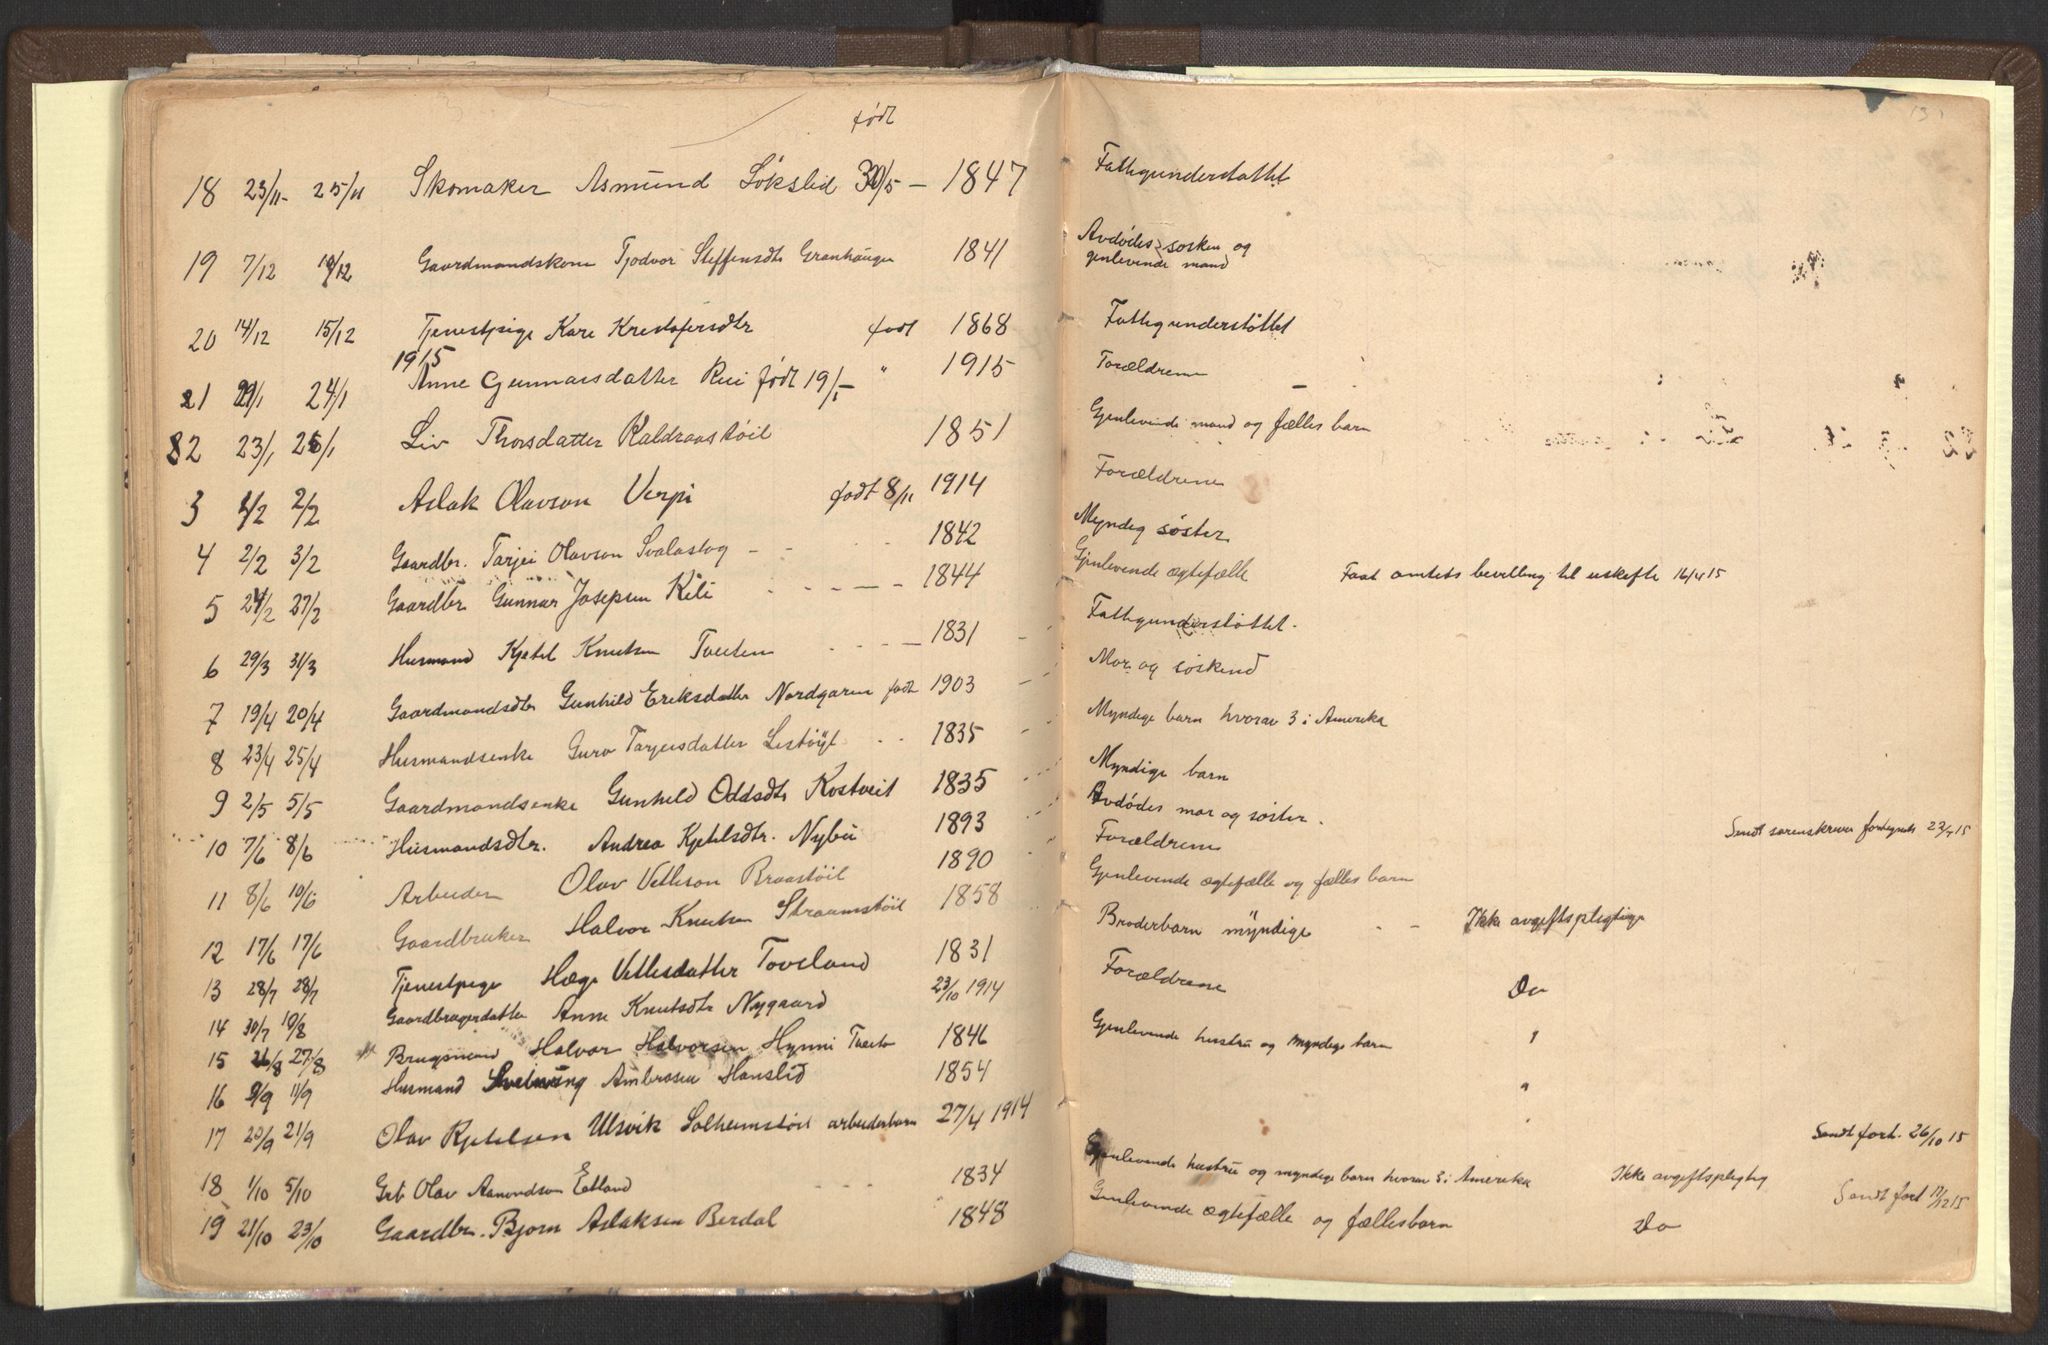 født
18 23/11- 25/11 Skomaker Asmund Løkslid 30/5 - 1847
19 7/12 10/12 Gaardmandskone Tjodvor Steffensdtr Granhaugen 1841
20 14/12 15/12 Tjenestpige Kare Kristofersdtr født 1868
1915
21 21/1 24/1 Anne Gunnarsdatter Rui født 19/1- " 1915
2 23/1 25/1 Liv Thorsdatter Kaldraastøil 1851
3 1/2 2/2 Aslak Olavson Verpi født 8/11 1914
4 2/2 3/2 Gaardbr. Tarjei Olavson Svalastog - - - 1842
5 24/2 27/2 Gaardbr Gunnar Josepsen Kili - - - - 1844
6 29/3 31/3 Husmand Kjetil Knutsen Tveiten - - - - 1831
7 19/4 20/4 Gaardmandsdtr Gunhild Eriksdatter Nordgaren født 1903
8 23/4 25/4 Husmandsenke Guro Tarjeisdatter Listøyl - - 1835
9 2/5 5/5 Gaardmandsenke Gunhild Oddsdtr Kostveit 1835
10 7/6 8/6 Husmandsdtr. Andrea Kjetilsdtr. Nybu 1893
11 8/6 10/6 Arbeider Olav Vetleson Braastøil 1890
12 17/6 17/6 Gaardbruker Halvor Knutsen Straumstøil 1858
13 28/7 28/7 Tjenestpige Hæge Vetlesdatter Toveland 1831
14 30/7 10/8 Gaardbrugerdatter Anne Knutsdtr Nygaard 23/10 1914
15 26/8 27/8 Brugsmand Halvor Halvorsen Hynni 1846
16 9/9 11/9 Husmand Sveinung Ambrosen Hanslid 1854
17 20/9 21/9 Olav Kjetilsen Ulsvik Solheimstøil arbeiderbarn 27/4 1914
18 1/10 5/10 Grb Olav Aamondson Edland - - - 1834
19 21/10 23/10 Gaardbr. Bjørn Aslaksen Berdal 1848
Fattigunderstøttet
Avdødes søsken og
gjenlevende mand
Fattigunderstøttet
Forældrene
Gjenlevende mand og fælles barn
Forældrene
Myndig søster
Gjenlevende ægtefælle Faat amtets bevilling til uskifte 16/4 15
Fattigunderstøttet.
Mor og søskend
Myndige barn hvorav 3 i Amerika
Myndige barn
Avdødes mor og søster. Sendt sorenskriver fortegnels 23/7 15
Forældrene
Gjenlevende ægtefælle og fælles barn
Broderbarn myndige - - Ikke avgiftspligtige
Forældrene Do
Gjenlevende hustru og myndige barn "
"
Sendt fort. 26/10 15
Gjenlevende hustru og myndige barn hvorav 3 i Amerika Ikke avgiftspligtig
Gjenlevende ægtefælle og fællesbarn Do Sendt fort 17/12 15